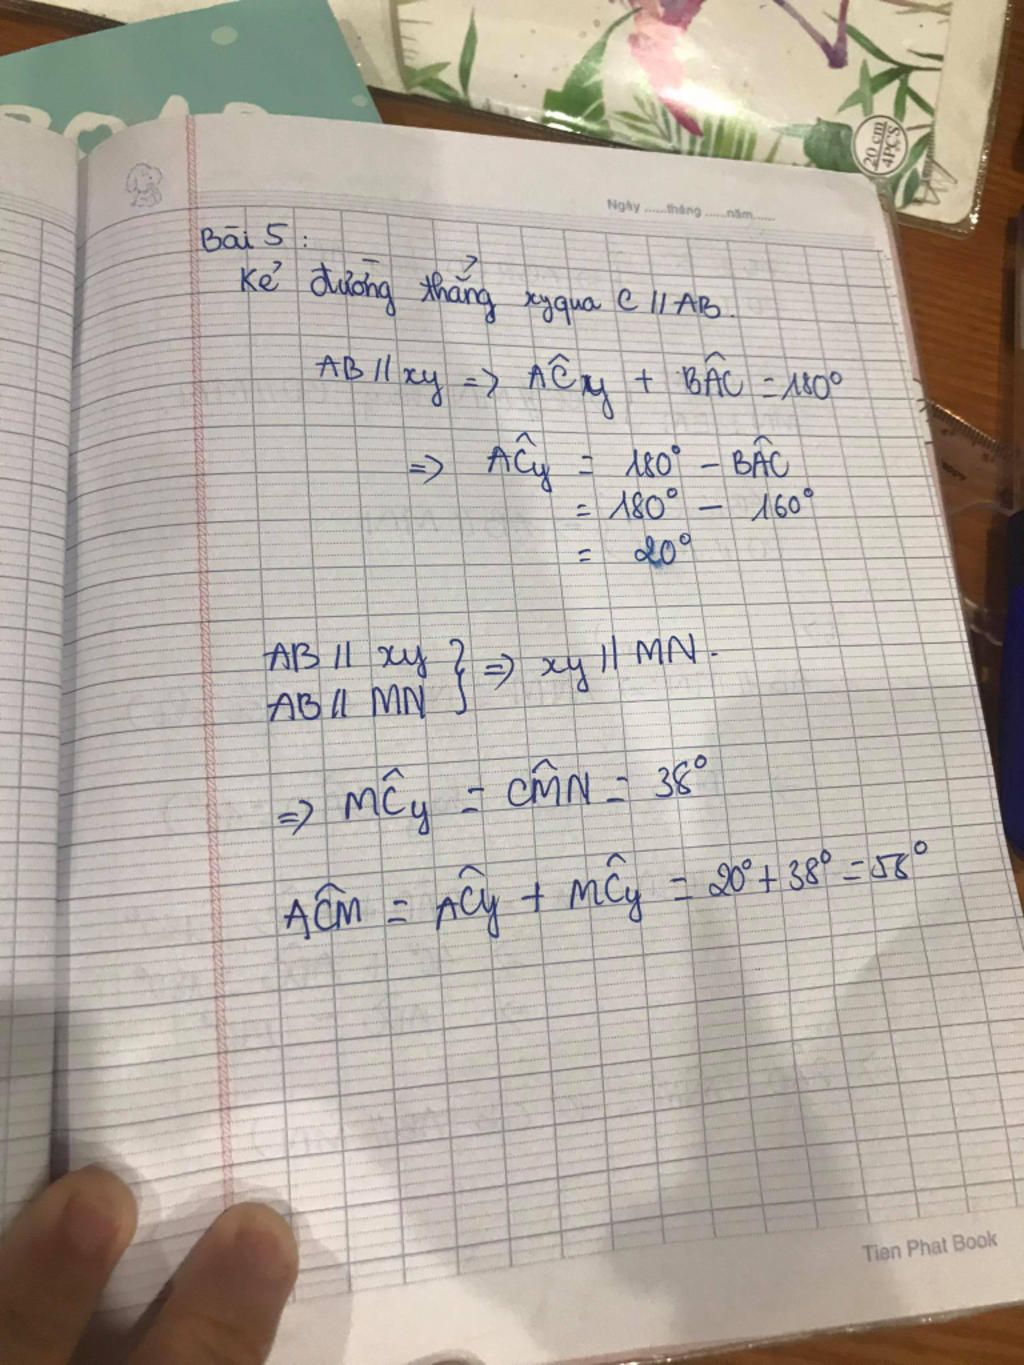 20 cm
4PCS
Ngày ......tháng ......năm......
Bài 5 :
Kẻ đường thẳng xy qua C // AB.
AB // xy => AĈy + BÂC = 180°
=> AĈy = 180° - BÂC
= 180° - 160°
= 20°
AB // xy
AB // MN } => xy // MN.
=> MĈy = CM̂N = 38°
AĈM = AĈy + MĈy = 20° + 38° = 58°
Tien Phat Book